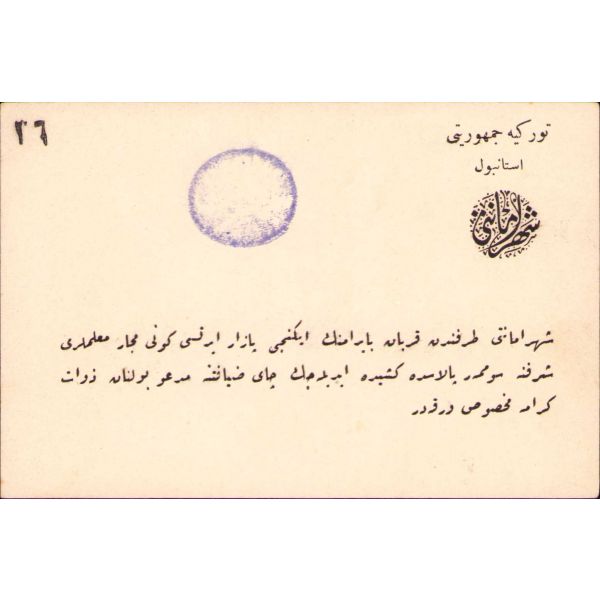 ٢٦
توركيه جمهوريتى
استانبول
شهر امانتى
شهر امانتى طرفندن قربان بايرامنك ايكنجى پازار ايرتسى كونى مجار معلملرى
شرفنه سوممر پالاسده كشيده ايديله جك چاى ضيافتنه مدعو بولنان ذوات
كرامه مخصوص ورقه در